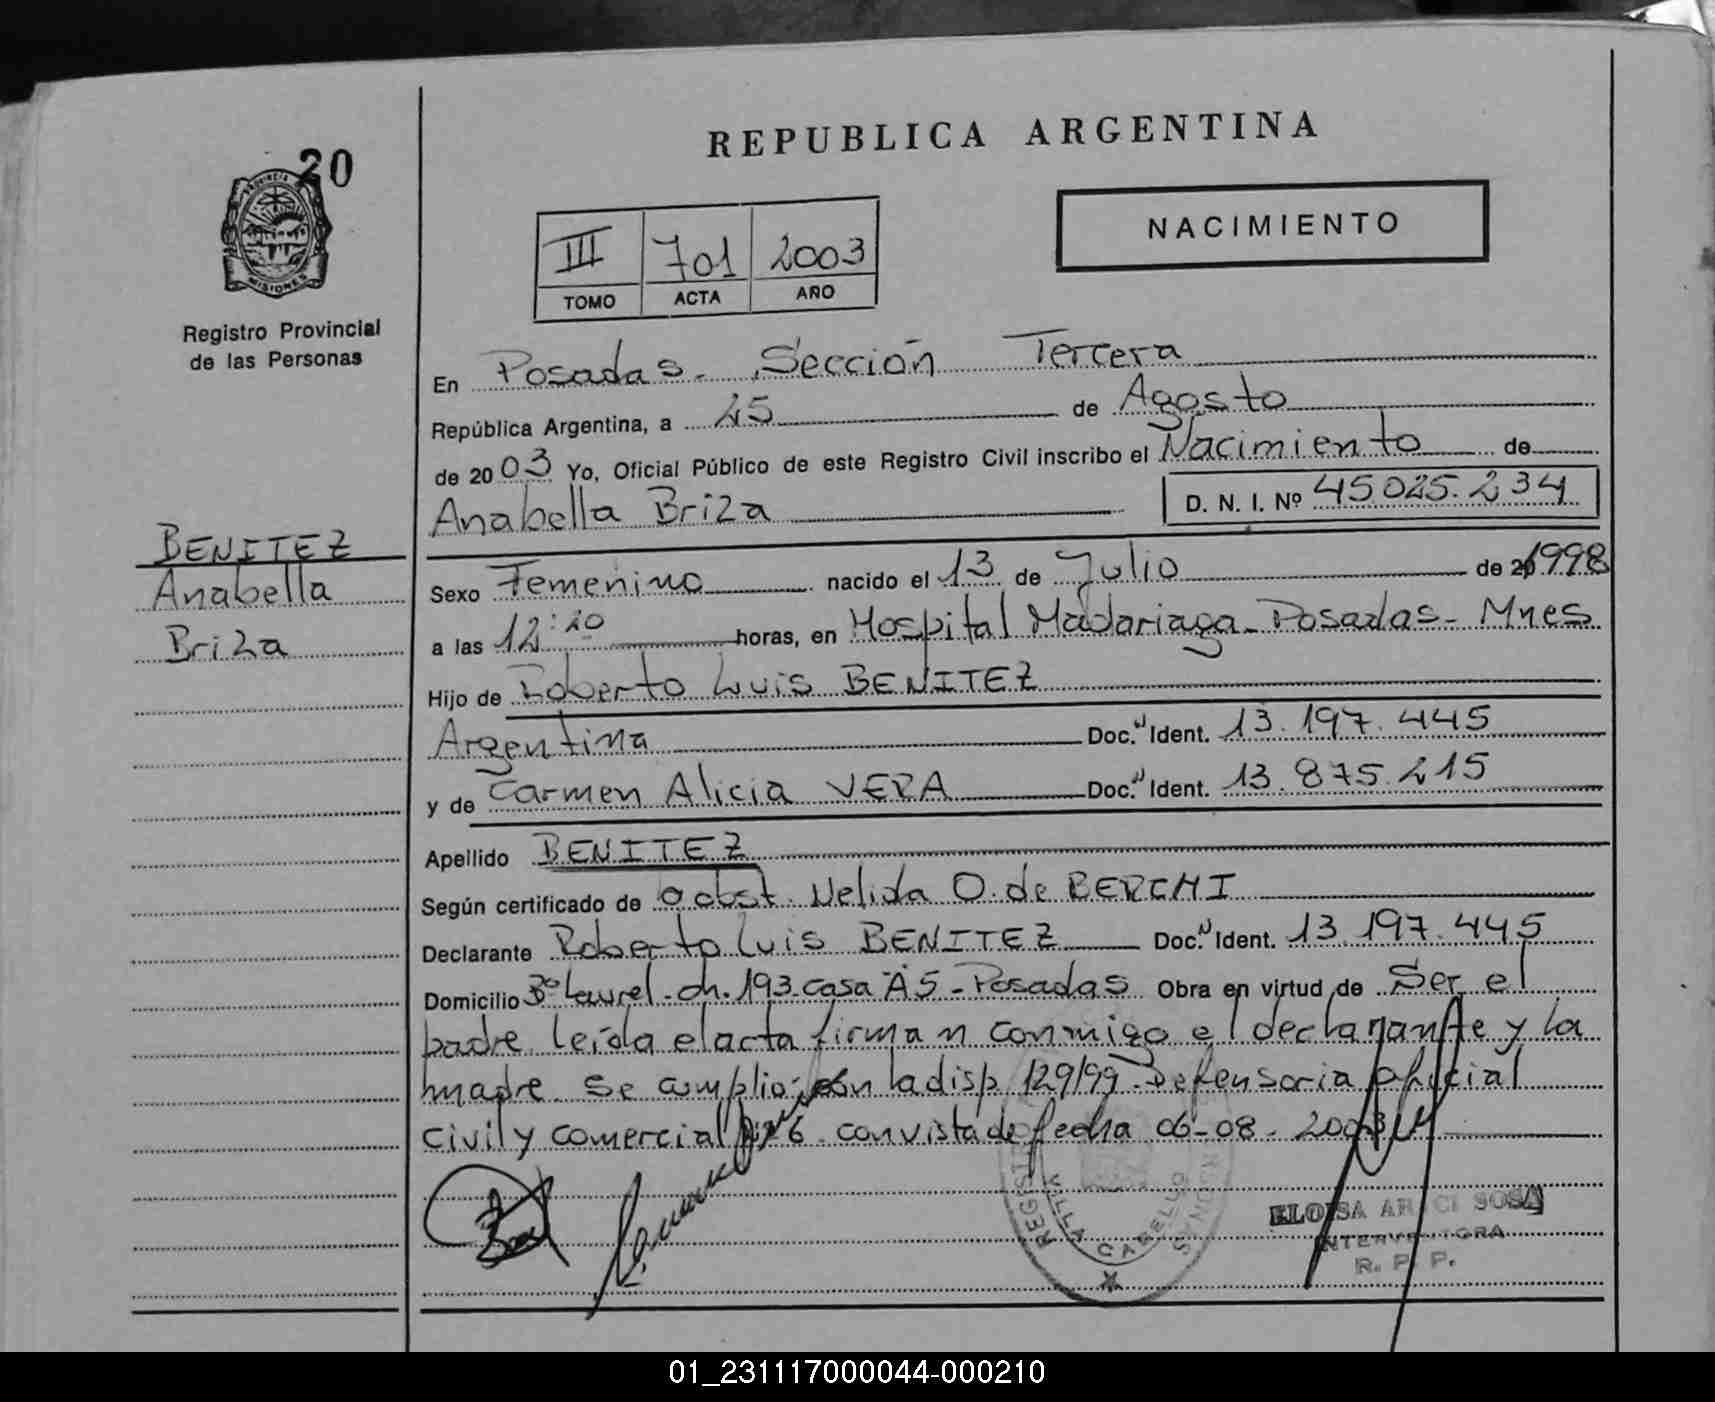 REPUBLICA ARGENTINA
20
PROVINCIA
MISIONES
Registro Provincial
de las Personas
III 701 2003
TOMO ACTA AÑO
NACIMIENTO
En Posadas - Sección Tercera
República Argentina, a 25 de Agosto
de 2003 Yo, Oficial Público de este Registro Civil inscribo el Nacimiento de
Anabella Briza D. N. I. Nº 45.025.234
BENITEZ
Anabella
Briza
Sexo Femenino nacido el 13 de Julio de 1998
a las 12:20 horas, en Hospital Madariaga - Posadas - Mnes
Hijo de Roberto Luis BENITEZ
Argentina Doc. Ident. 13.197.445
y de Carmen Alicia VERA Doc. Ident. 13.875.215
Apellido BENITEZ
Según certificado de obst. Nelida O. de BERCHI
Declarante Roberto Luis BENITEZ Doc. Ident. 13.197.445
Domicilio Bº Laurel - ch. 193 - casa A5 - Posadas Obra en virtud de Ser el
padre leída el acta firman conmigo el declarante y la
madre. Se cumplio con la disp. 129/99 - Defensoria oficial
civil y comercial Nº 6 con vista de fecha 06-08-2003
VILLA CABELLO
ELOISA SOSA
INTERVENTORA
R. P. P.
01_231117000044-000210